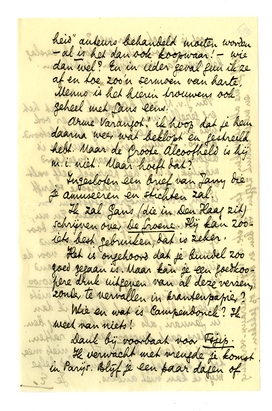 heid auteurs behandeld moeten worden
– al is het dan ook koopwaar! – wie
dan wel? En in ieder geval gun ik ze
af en toe zoo'n sermoen van harte.
Menno is het hierin trouwens ook
geheel met Gans eens.
Arme Varangot! ik hoop dat je hem
daarna weer wat beklopt en gestreeld
hebt. Maar de Groote Alcoolheld is hij
m.i. niet. Maar hoeft dat?
Ingesloten een brief van Jany die
je amuseeren en stichten zal.
Ik zal Gans (die in Den Haag zit)
schrijven over de Troene. Hij kan zoo-
iets best gebruiken, dat is zeker.
Het is ongehoord dat je bundel zoo
goed gegaan is. Maar kan je een goedkoo-
pere druk uitgeven van al deze verzen,
zonder te vervallen in krantenpapier?
Wie en wat is Campendonck? Ik
weet van niets!
Dank bij voorbaat voor
Ik verwacht met vreugde je komst
in Parijs. Blijf je een paar dagen of